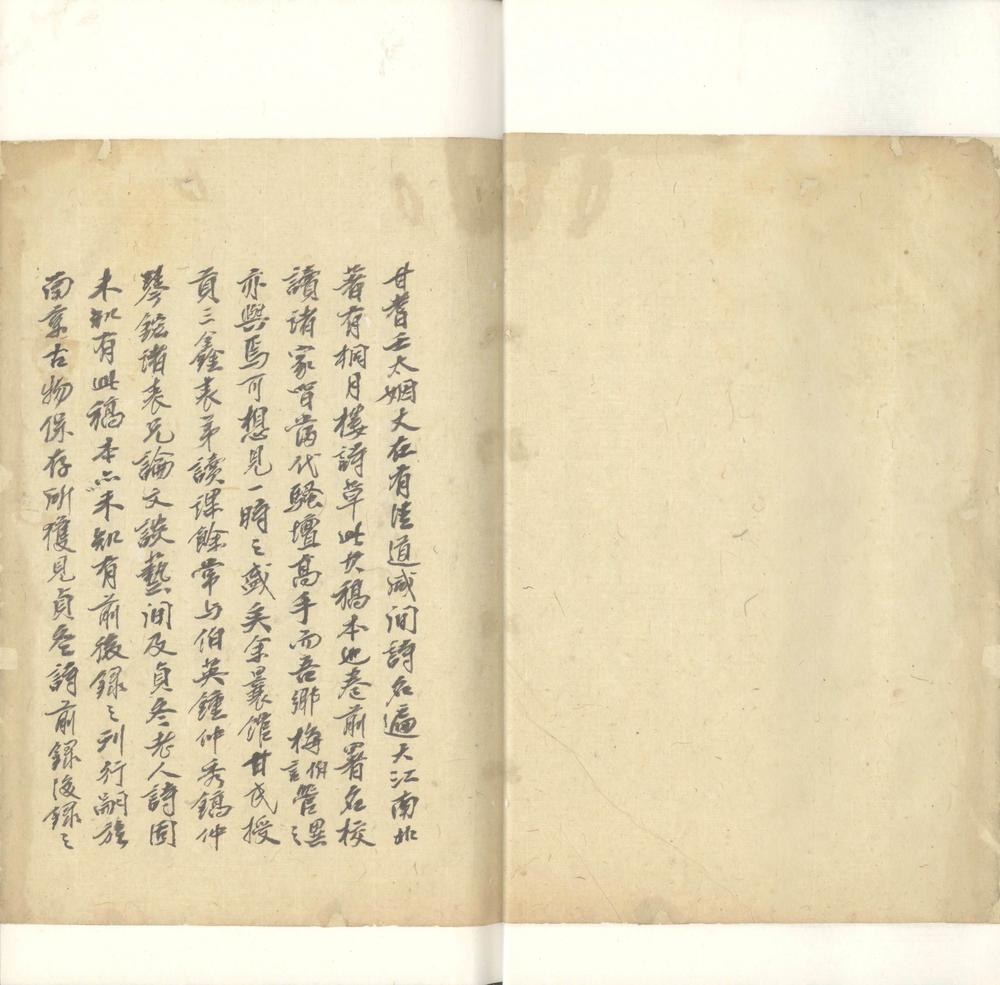 甘耆壬太姻丈在有清道咸間詩名遍大江南北
著有桐月樓詩草此其稿本也卷前署名校
讀諸家皆當代騷壇高手而吾鄉梅伯言管異之
亦與焉可想見一時之盛矣余曩館甘氏授
貢三鑫表弟讀課餘常与伯英鍾仲秀鐫仲
琴鋐諸表兄論文談藝間及貞冬老人詩固
未知有此稿本亦未知有前後錄之刊行嗣旅
南京古物保存所獲見貞冬詩前錄後錄之